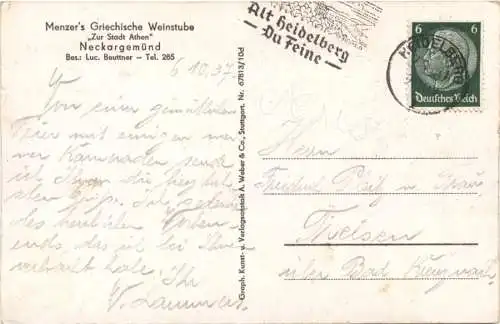 Menzer's Griechische Weinstube
"Zur Stadt Athen"
Neckargemünd
Bes.: Luc. Beuttner – Tel. 265
6.10.37.
Von einer gemütlichen
Feier mit einigen mei-
ner Kameraden sende
ich Ihnen die herzlich-
sten Grüße. Ich gedenke
des herrlichen
ends, das ich bei Ihnen
verbracht habe. Ihr
Graph. Kunst- u. Verlagsanstalt A. Weber & Co., Stuttgart, Nr. 67813/10d
Alt Heidelberg
Du Feine
HEIDELBERG
6 6
Deutsches Reich
Herrn
u. Frau
über Bad Kreuznach